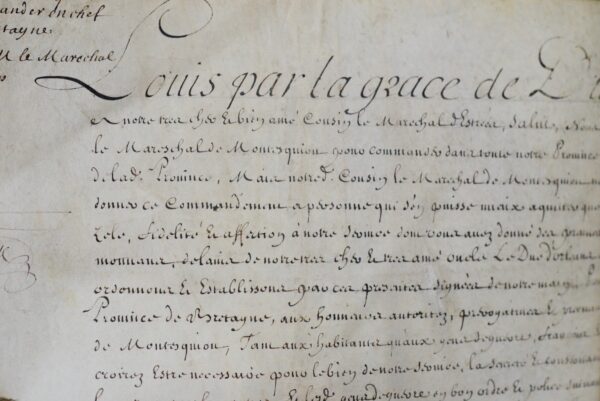 ander en chef
tagne.
le Marechal
Louis par la grace de
A notre tres cher et bien amé Cousin le Marechal d'Estrees, Salut,
le Mareschal de Montesquiou pour commander dans toute notre Province
de lad. Province, Mais notred. Cousin le Marechal de Montesquiou
donner ce Commandement a personne qui s'en puisse mieux aquiter que
zele, fidelité et affection à notre service dont vous avez donné
de l'avis de notre tres cher et tres amé oncle Le Duc d'Orleans
ordonnons et Establissons par ces presentes signées de notre main,
Province de Bretagne, aux honneurs autoritez, prerogatives et
de Montesquiou, Tant aux habitants qu'aux gens de guerre,
croirez Estre necessaire pour le bien de notre service, la sureté et
gens de guerre en bon ordre et police